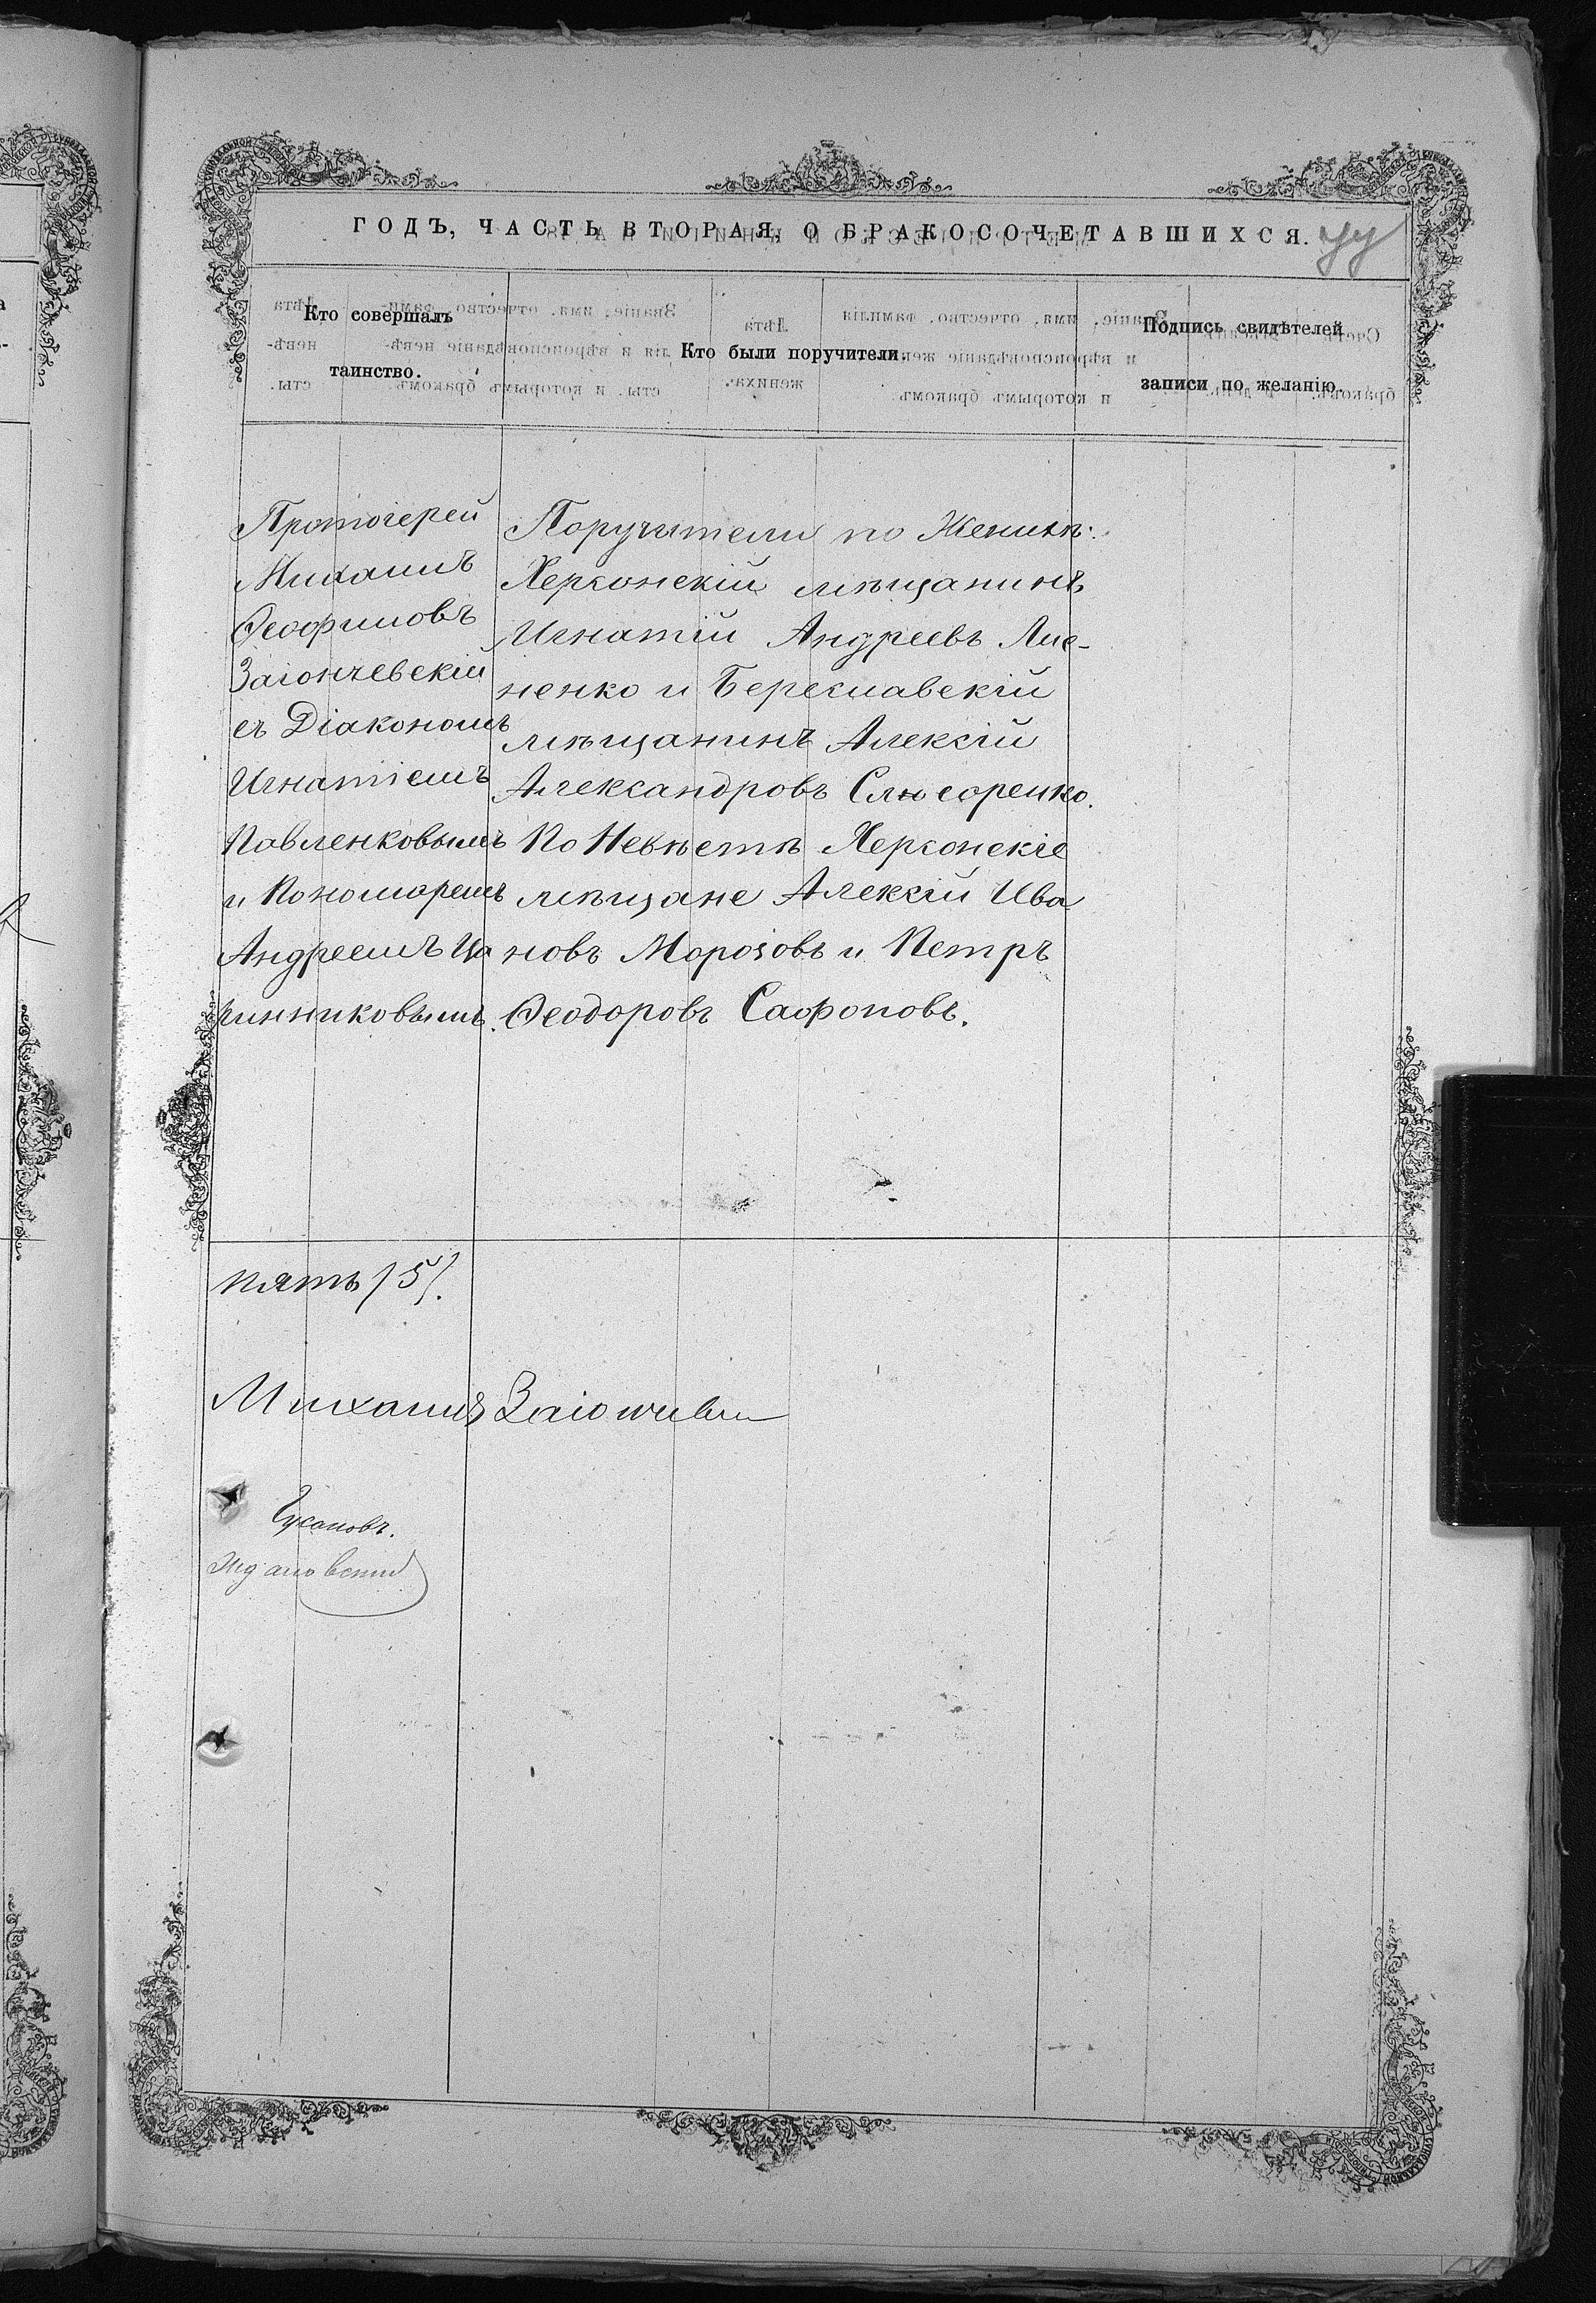 ГОДЪ, ЧАСТЬ ВТОРАЯ, О БРАКОСОЧЕТАВШИХСЯ.
Кто совершалъ
таинство.
Кто были поручители.
Подпись свидѣтелей
записи по желанію.
Протоіерей
Михаилъ
Ѳеофиловъ
Заіончевскій
съ Діакономъ
Игнатіемъ
Павленковымъ
и Пономаремъ
Андреемъ Ца
ринниковымъ.
Поручители по Женихѣ:
Херсонскій мѣщанинъ
Игнатій Андреевъ Лис-
ненко и Бериславскій
мѣщанинъ Алексій
Александровъ Слюсоренко.
По Невѣстѣ Херсонскіе
мѣщане Алексій Ива
новъ Морозовъ и Петръ
Ѳеодоровъ Сафоновъ.
пять /5/.
Михаилъ Заіончевскій